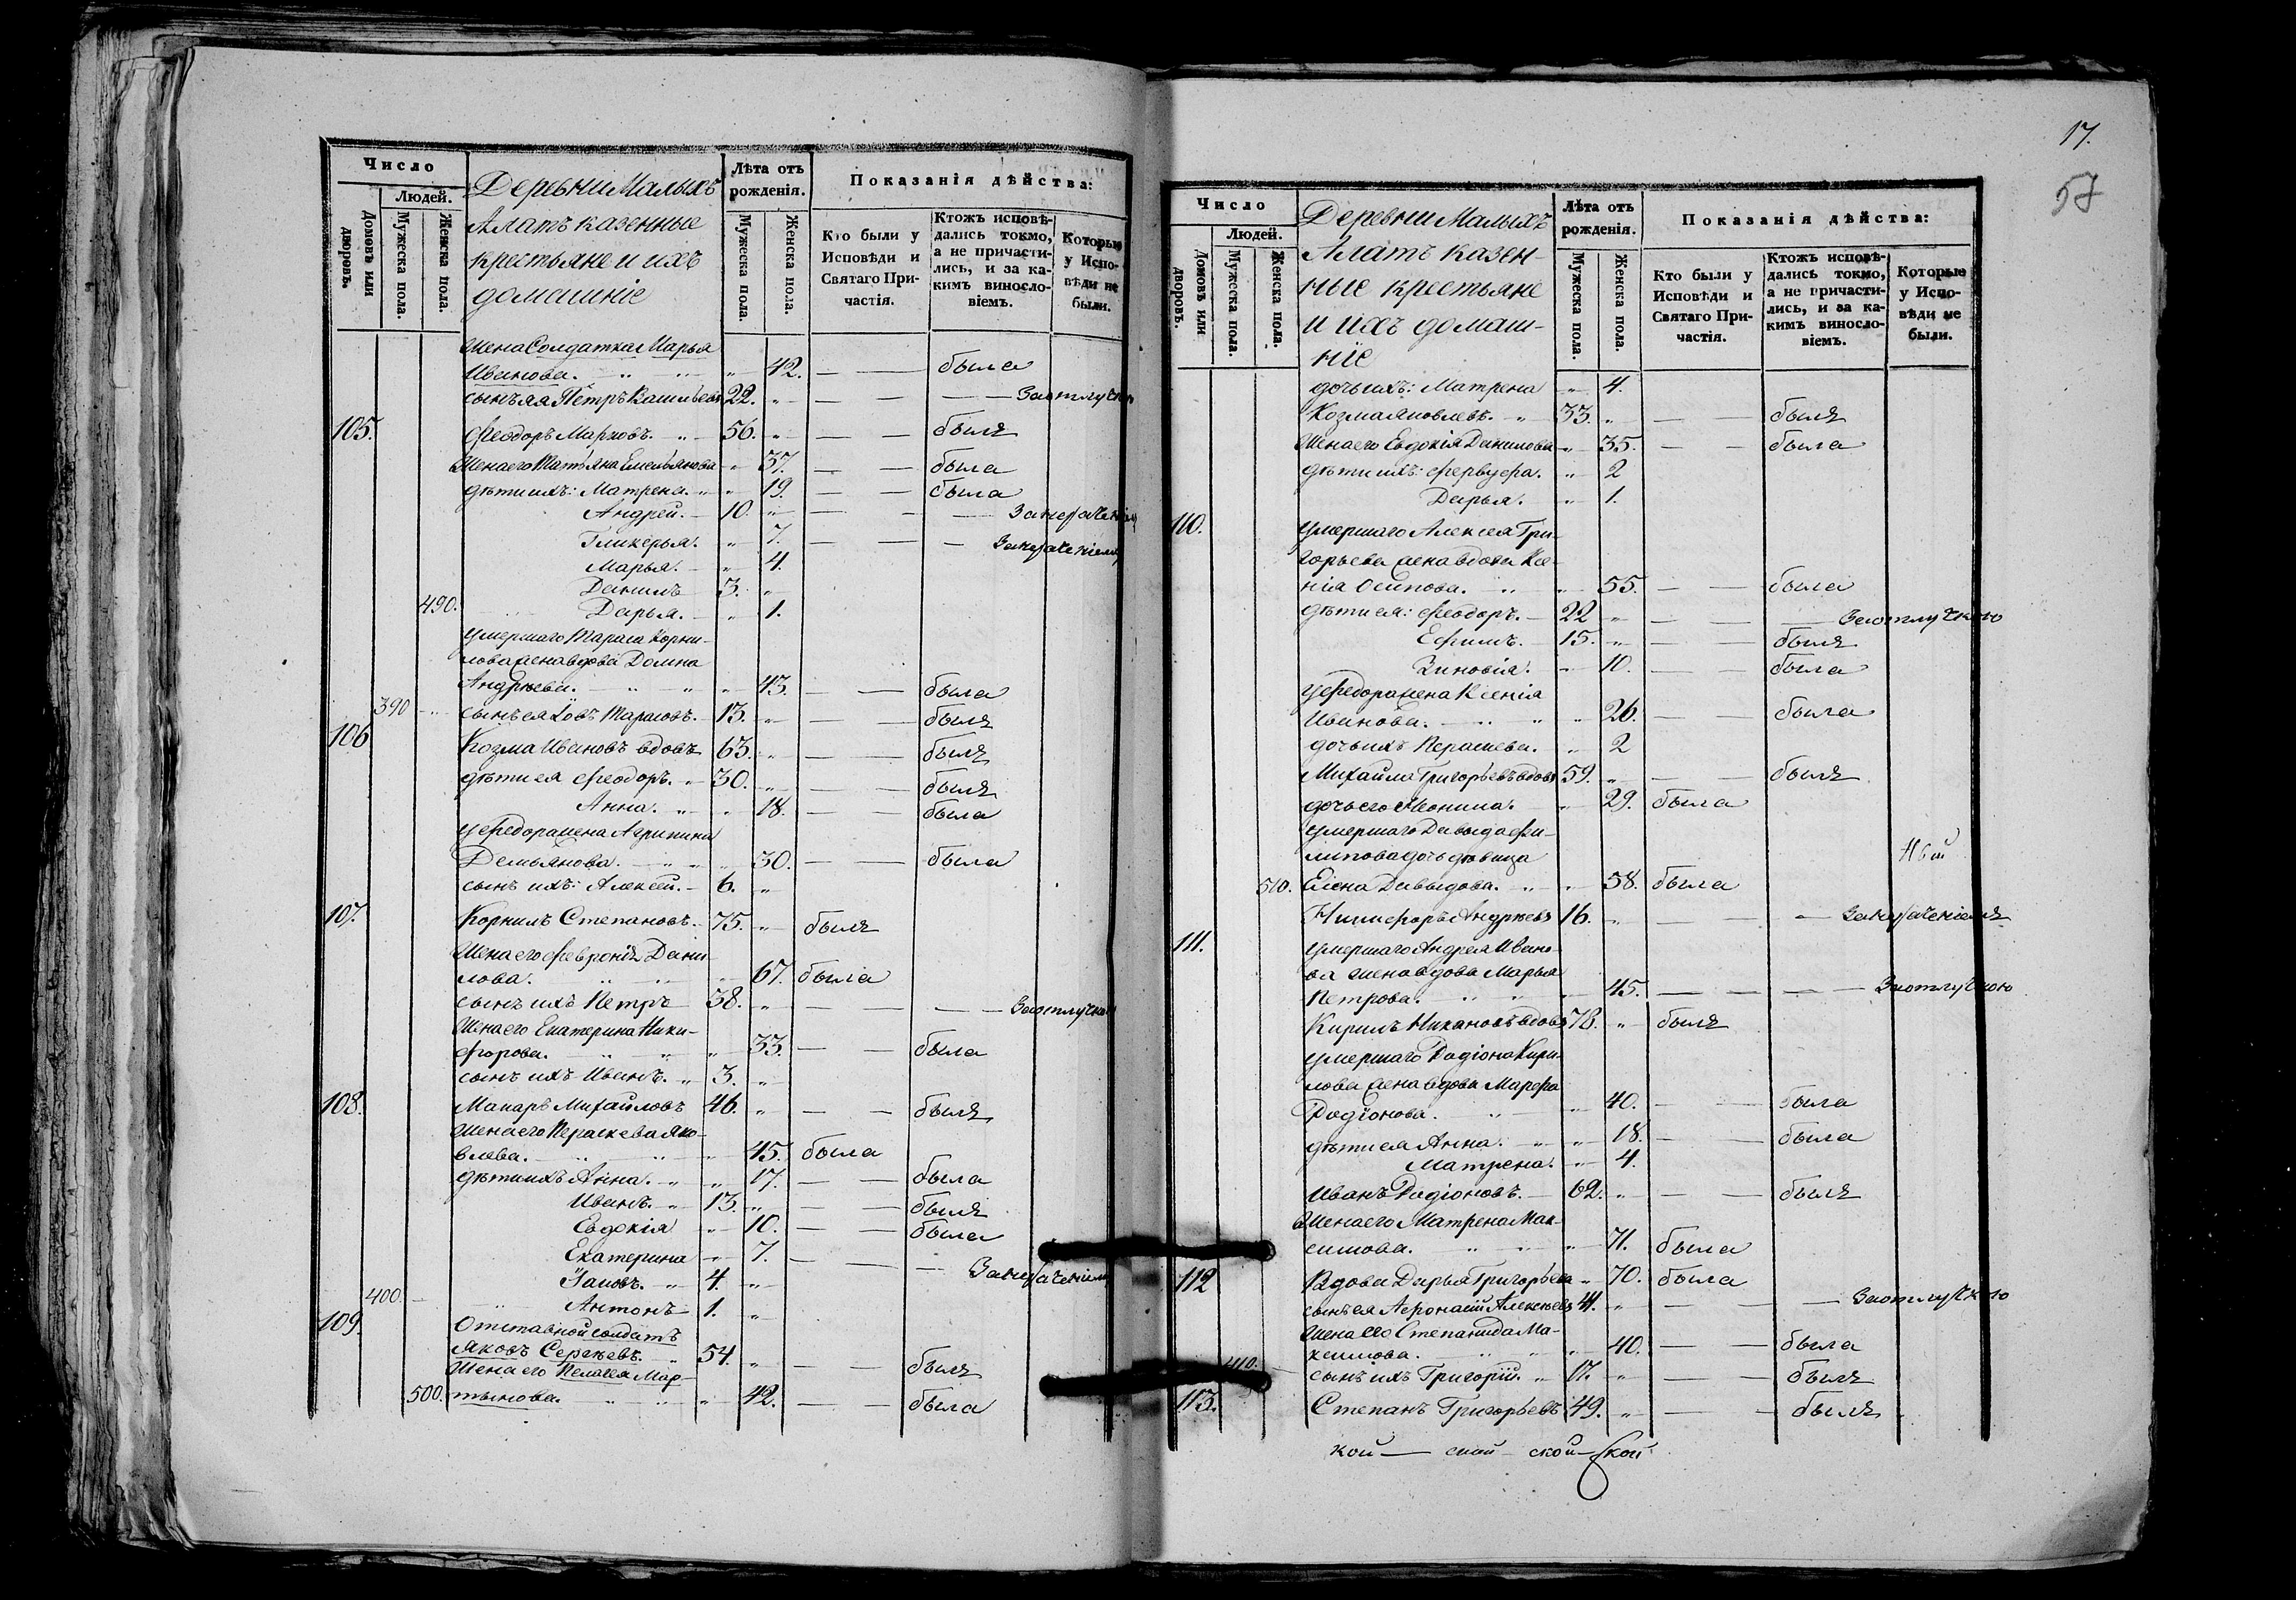 Число
Людей.
Домовъ или дворовъ.
Мужеска пола.
Женска пола.
Деревни Малыхъ
Алатъ казенные
крестьяне и ихъ
домашніе
Лѣта отъ рожденія.
Мужеска пола.
Женска пола.
Показанія дѣйства:
Кто были у Исповѣди и Святаго Причастія.
Ктожъ исповѣдались токмо, а не причастились, и за какимъ винословіемъ.
Которые у Исповѣди не были.
Жена Солдатка Марья
Иванова. " " " 42. — — была
сынъ ея Петръ Васильевъ 22. " — — — — За отлучкою
105. Феодоръ Марковъ. " 56. " — — былъ
Жена его Татьяна Емельянова " 37. — — была
дѣти ихъ: Матрена. " " 19. — — была
Андрей. — 10. " — — — За нерачениемъ
Гликерья. " 7. — — — За нерачениемъ
Марья. — " 4.
Данилъ 3. "
490. Дарья. — " 1.
умершаго Тараса Корни-
лова жена вдова Домна
Андрѣева. — " " " 43. — — была
390 сынъ ея Іовъ Тарасовъ. — 13. " — — былъ
106 Козма Ивановъ вдовъ 63. " — — былъ
дѣти ея Феодоръ. " 30. " — — былъ
Анна. " " 18. — — была
у Федора жена Агрипина
Демьянова. — " " " 30. — — была
сынъ ихъ: Алексей. — 6. "
107. Корнилъ Степановъ. — 75. " былъ
Жена его Февронія Дани-
лова. " " " 67. была
сынъ ихъ Петръ 38. " — — — — За отлучкою
Жена его Екатерина Ники-
форова. — " " " 33. — — была
сынъ ихъ Иванъ. " 3. "
108. Макаръ Михайловъ 46. " — — былъ
Жена его Параскева Яко-
влева. — " " " 45. была
дѣти ихъ Анна. " " 17. — — была
Иванъ. " 13. " — — былъ
Евдокія " 10. — — была
Екатерина " 7. — — — За нерачениемъ
Іаковъ. " 4. "
400. Антонъ 1. "
109. Отставной солдатъ
Яковъ Сергѣевъ. " 54. " — — былъ
Жена его Пелагея Мар-
500. тынова. " " " 42. — — была
17.
57
Число
Людей.
Домовъ или дворовъ.
Мужеска пола.
Женска пола.
Деревни Малыхъ
Алатъ казен-
ные крестьяне
и ихъ домаш-
ніе
Лѣта отъ рожденія.
Мужеска пола.
Женска пола.
Показанія дѣйства:
Кто были у Исповѣди и Святаго Причастія.
Ктожъ исповѣдались токмо, а не причастились, и за какимъ винословіемъ.
Которые у Исповѣди не были.
дочь ихъ: Матрена " 4.
Козма Яковлевъ. " 33. " — — былъ
Жена его Евдокія Данилова " 35. — — была
дѣти ихъ: Фервуфа. " 2
Дарья. " 1.
110. умершаго Алексея Гри-
горьева жена вдова Ксе-
нія Осипова. " " " 55. — — была
дѣти ея: Феодоръ. — 22 " — — — За отлучкою
Ефимъ. — 15. " — — былъ
Зиновія. " 10. — — была
у Федора жена Ксенія
Иванова. — " " " 26. — — была
дочь ихъ Параскева. " 2
Михайла Григорьевъ вдовъ 59. " — — былъ
дочь его — " 29. была
умершаго Давыда Фи-
липова дочь дѣвица
510. Елена Давыдова. " " 58. была
Никифоръ Андрѣевъ 16. " — — — За нерачениемъ
111. умершаго Андрея Ивано-
ва жена вдова Марья
Петрова. " " " 45. — — — — За отлучкою
Кирилъ вдовъ 78. " былъ
умершаго Родіона Кири-
лова жена вдова Марфа
Родіонова. " " 40. — — была
дѣти ея Анна. " " 18. — — была
Матрена. " 4.
Иванъ Родіоновъ. — 62. " — — былъ
Жена его Матрена Мак-
симова. " " " 71. была
112 Вдова Дарья Григорьева " 70. была
сынъ ея Афонасій Алексѣевъ 41. " — — — За отлучкою
Жена его Степанида Ма-
ксимова. " " " 40. — — была
410. сынъ ихъ Григорій. " 17. " — — былъ
113. Степанъ Григорьевъ 49. " — — былъ
кой — ской — ской — ской